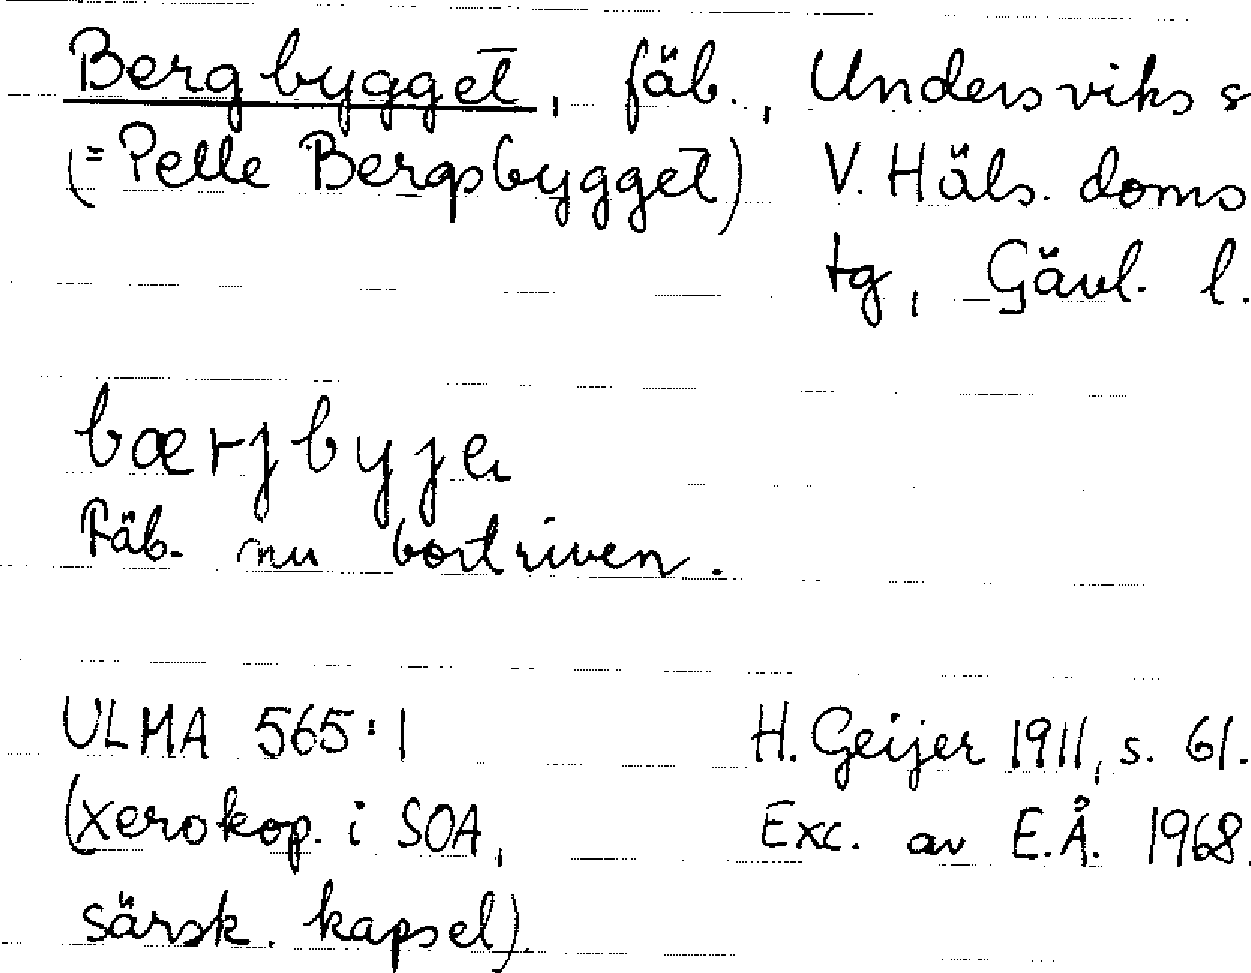 Bergbygget, fäb., Undersviks s
(= Pelle Bergsbygget) V. Häls. doms
tg, Gävl. l.
bærjbyje
Fäb. nu bortriven.
ULMA 565:1 H. Geijer 1911, s. 61.
(xerokop. i SOA, Exc. av E.Å. 1968.
särsk. kapsel)